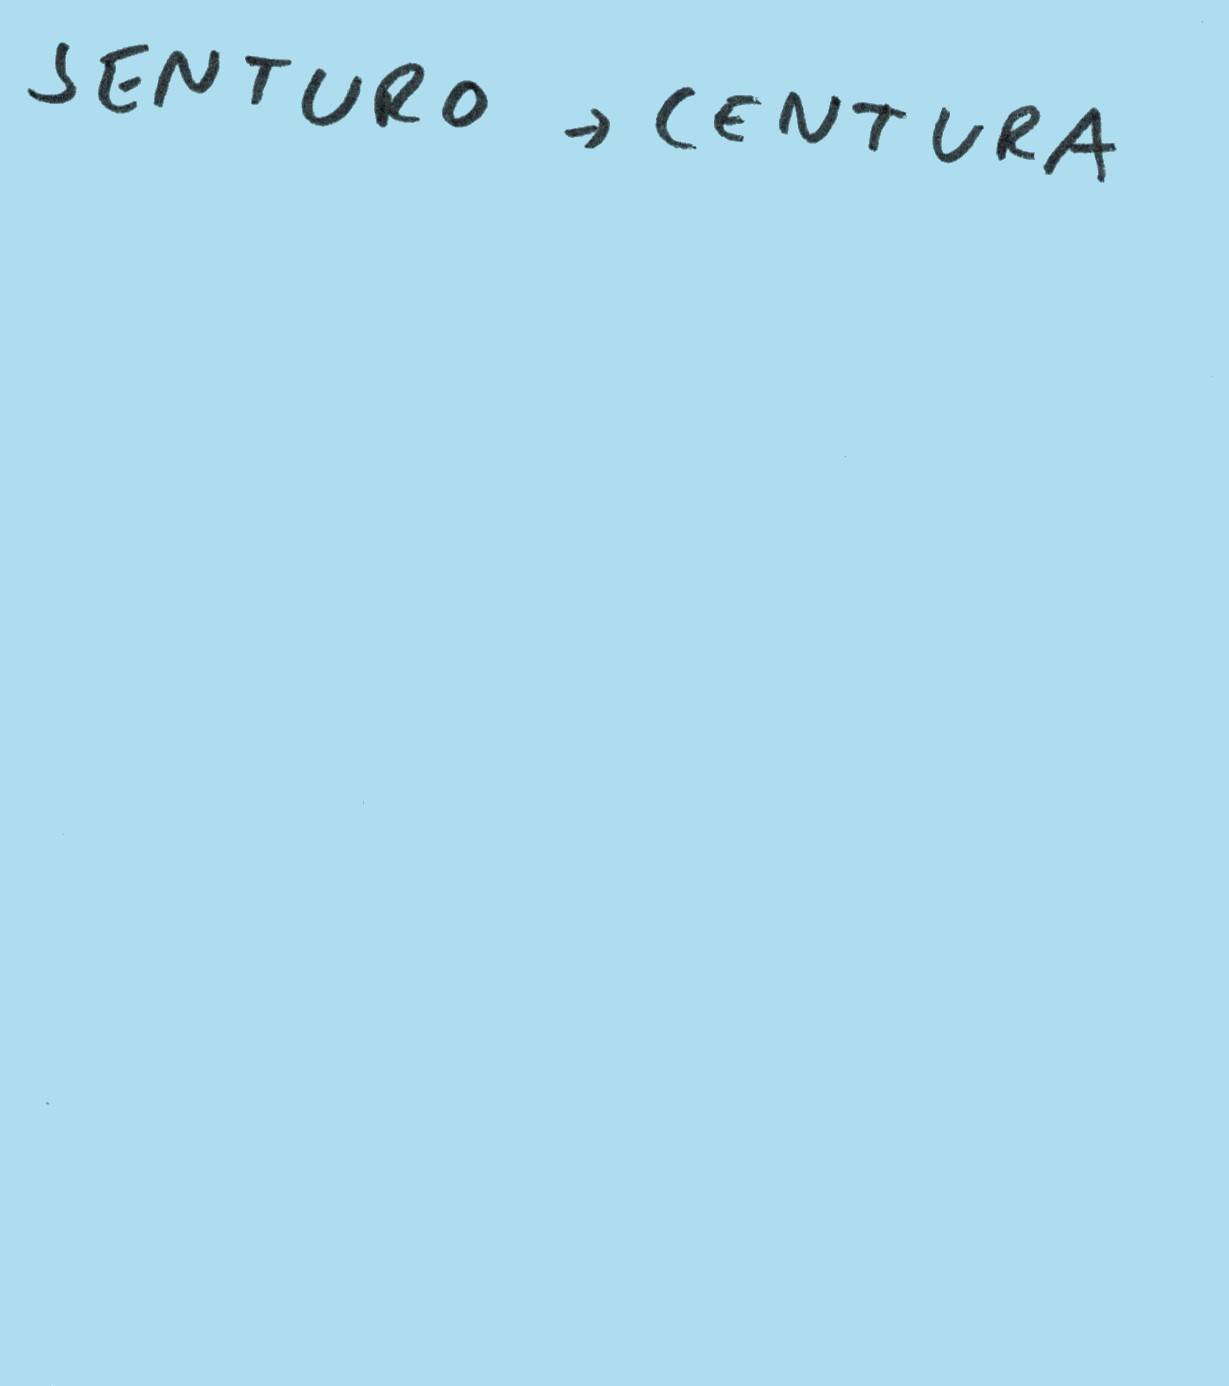 SENTURO → CENTURA